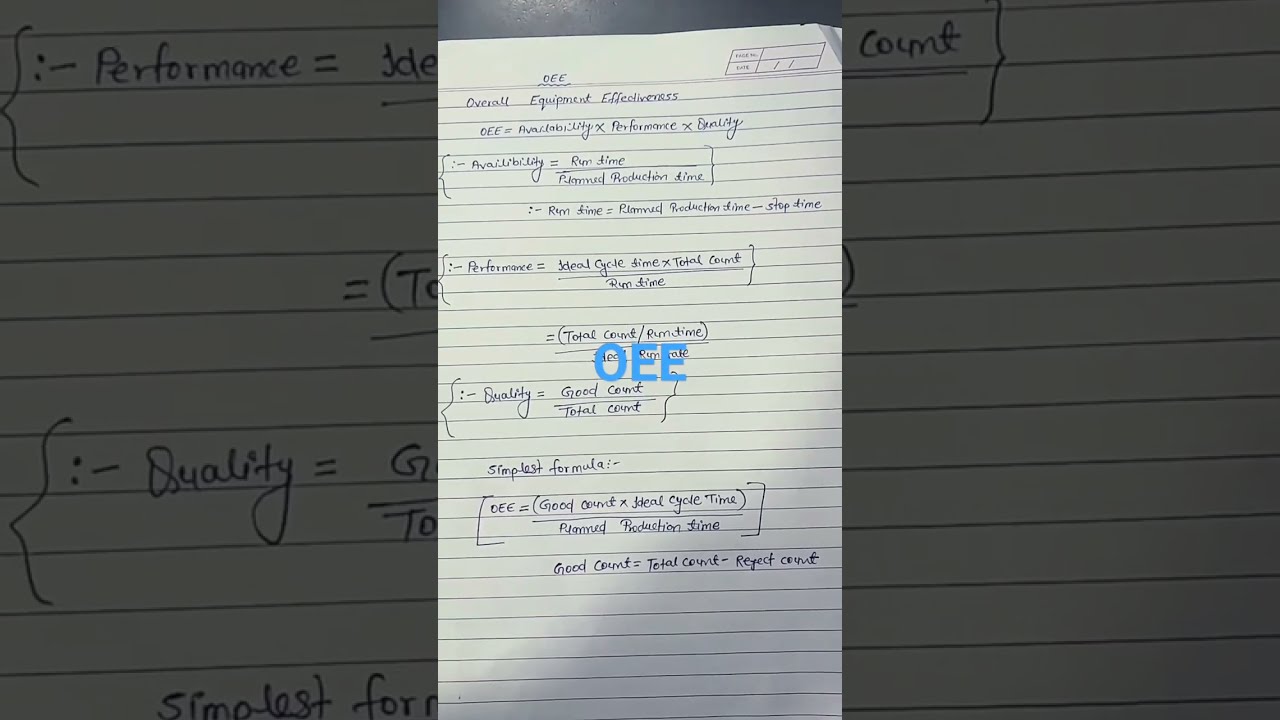 PAGE NO.
DATE / /
OEE
Overall Equipment Effectiveness
OEE = Availability × Performance × Quality
:- Availibility = Run time
Planned Production time
:- Run time = Planned Production time - stop time
:- Performance = Ideal Cycle time × Total Count
Run time
= (Total Count / Run time)
Run
OEE
:- Quality = Good Count
Total Count
Simplest formula:-
OEE = (Good Count × Ideal Cycle Time)
Planned Production time
Good Count = Total Count - Reject Count
:- Performance = Ide
Count
= (To
:- Quality = G
To
Simplest for